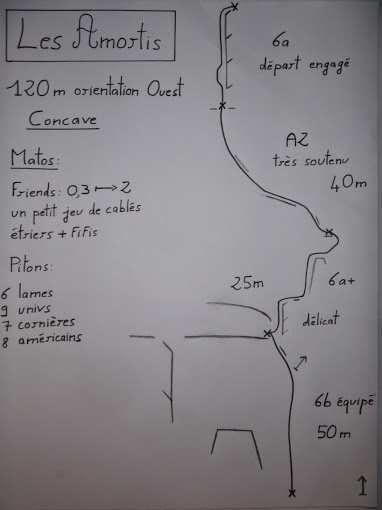 Les Amortis
120m orientation Ouest
Concave
Matos:
Friends: 0,3 ⟼ 2
un petit jeu de cablés
étriers + FiFis
Pitons:
6 lames
9 univs
7 cornières
8 américains
6a
départ engagé
A2
très soutenu
40m
25m
6a+
délicat
6b équipé
50m